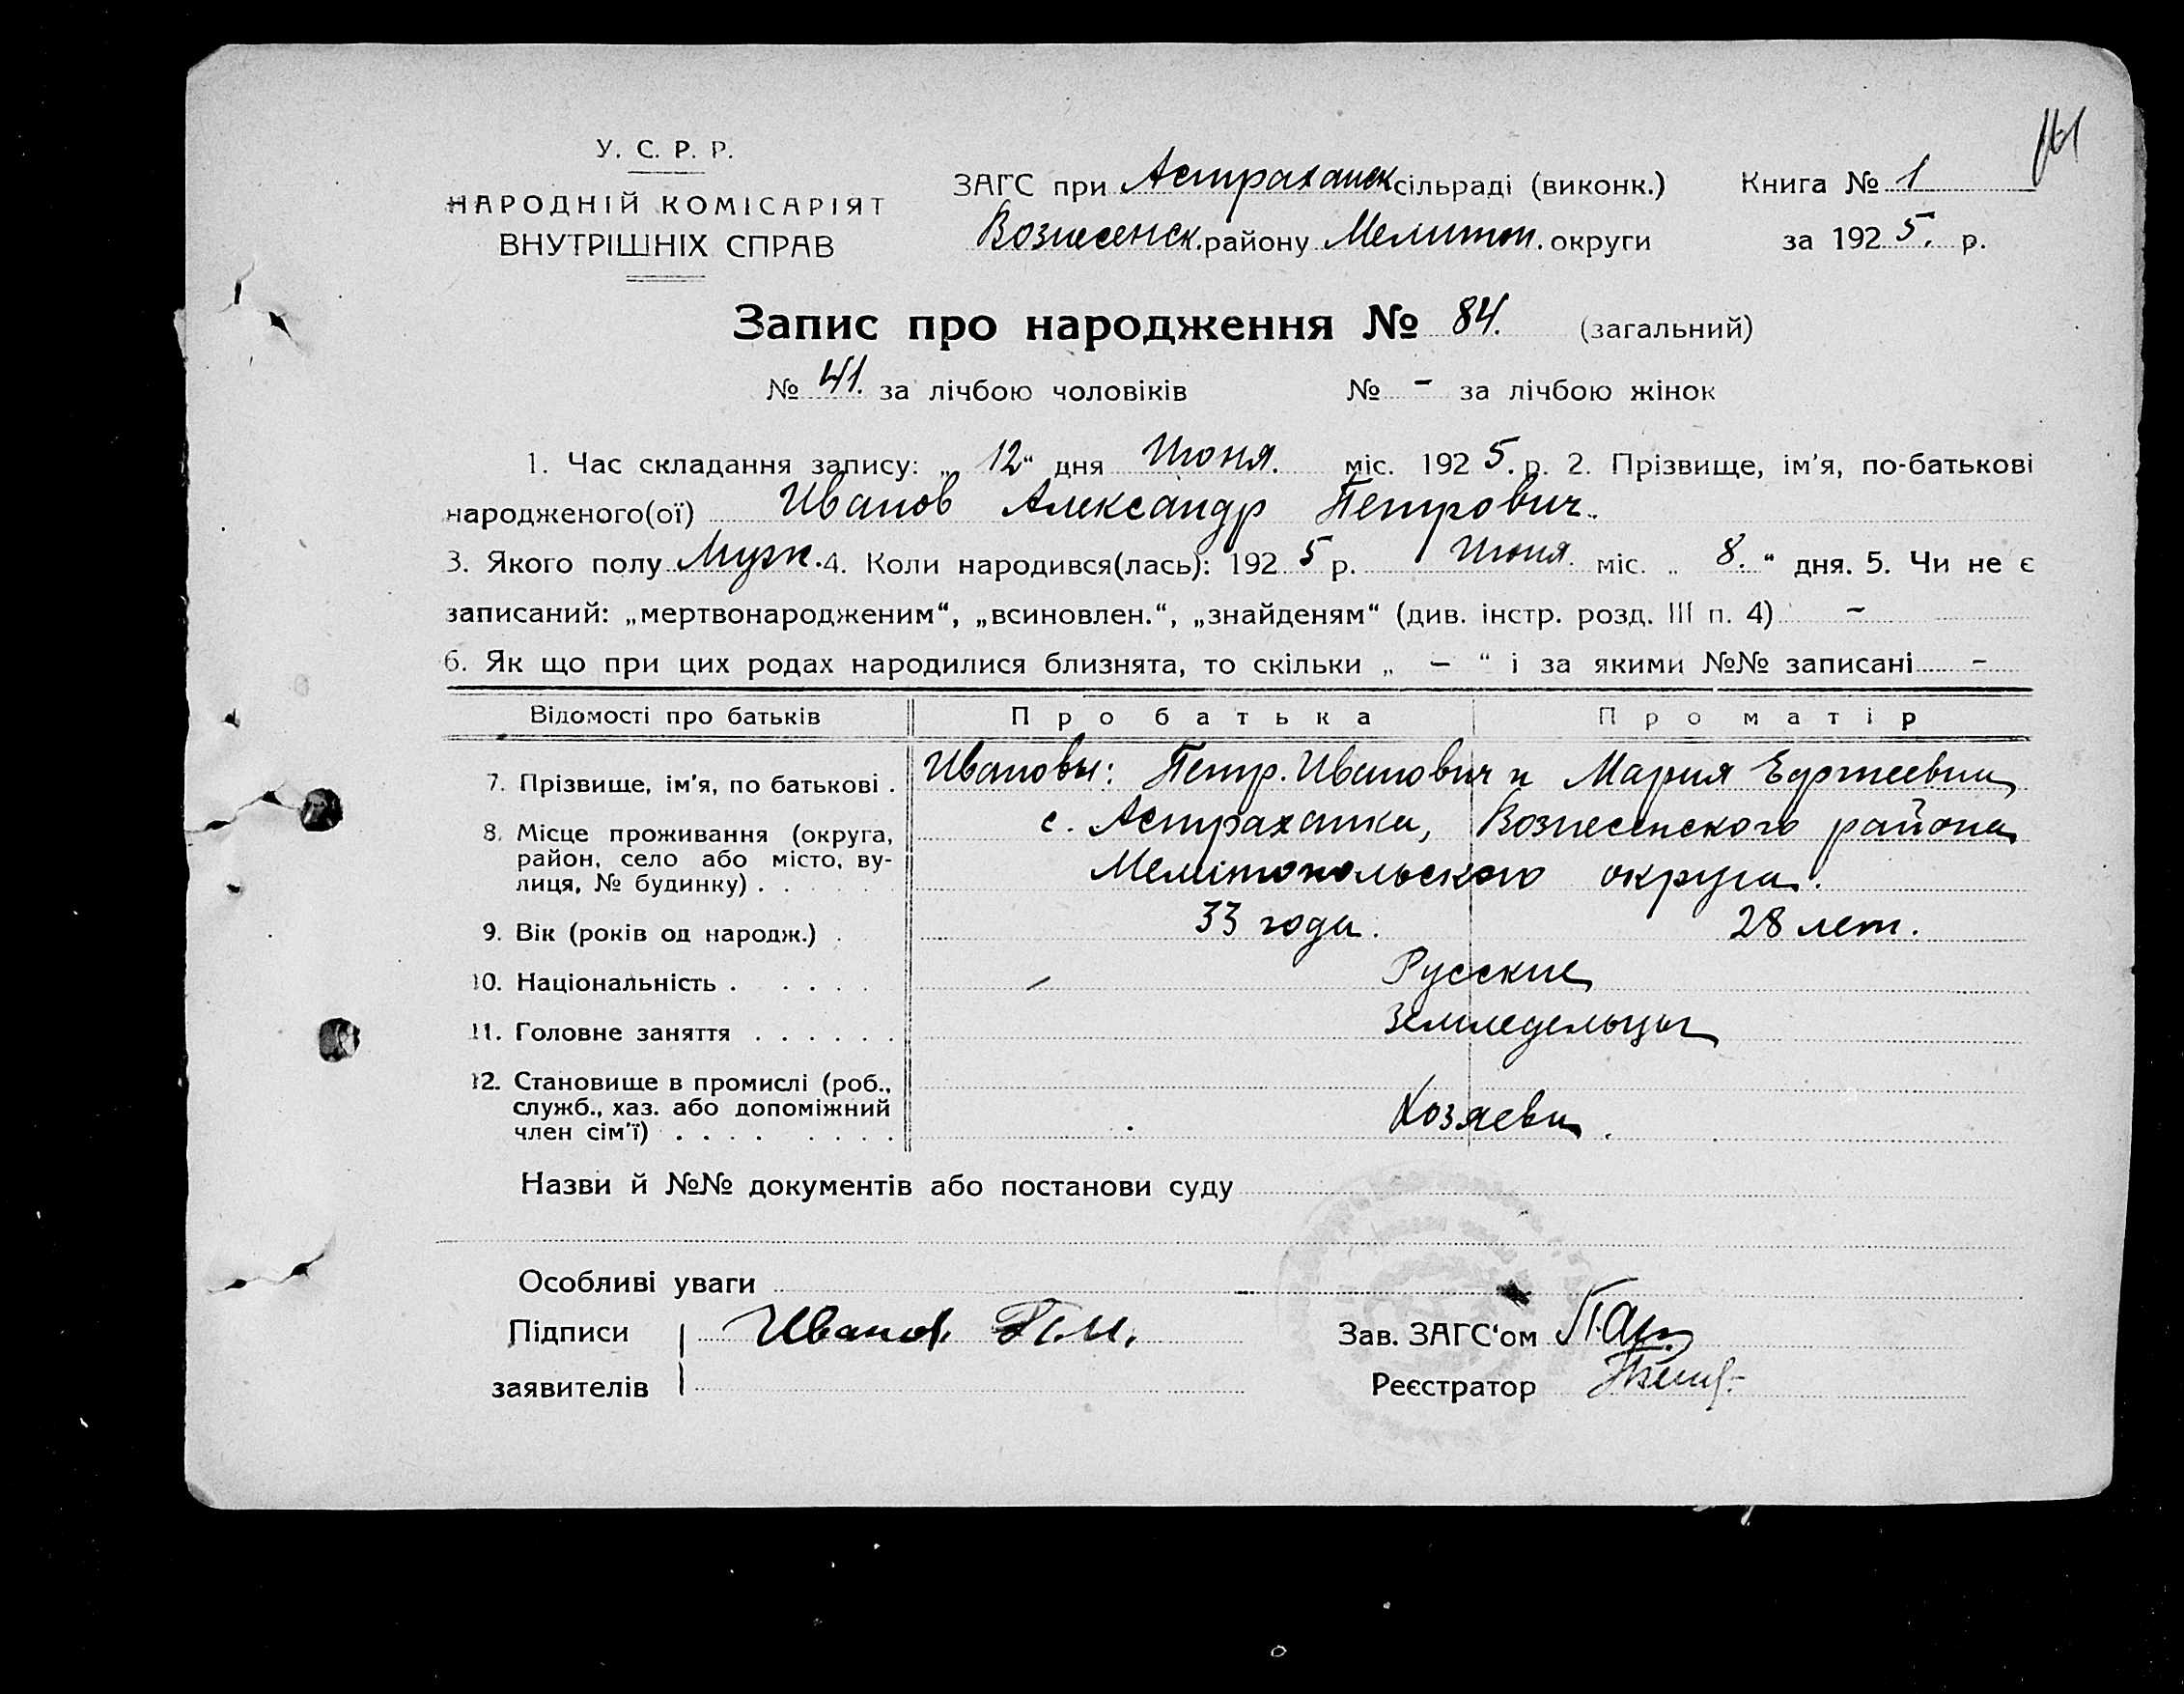 У. С. Р. Р.
НАРОДНІЙ КОМІСАРІЯТ
ВНУТРІШНІХ СПРАВ
ЗАГС при Астраханск сільраді (виконк.) Книга № 1
Вознесенск. району Мелитоп. округи за 192 5. р.
161
Запис про народження № 84. (загальний)
№ 41. за лічбою чоловіків № - за лічбою жінок
1. Час складання запису: „ 12 “ дня Июня. міс. 192 5. р. 2. Прізвище, ім'я, по-батькові
народженого(ої) Иванов Александр Петрович.
3. Якого полу Муж. 4. Коли народився(лась): 192 5 р. Июня. міс. „ 8. “ дня. 5. Чи не є
записаний: „мертвонародженим“, „всиновлен.“, „знайденям“ (див. інстр. розд. III п. 4) -
6. Як що при цих родах народилися близнята, то скільки „ - “ і за якими №№ записані -
Відомості про батьків Про батька Про матір
7. Прізвище, ім'я, по батькові . Ивановы: Петр. Иванович и Мария
8. Місце проживання (округа, с. Астраханка, Вознесенского района
район, село або місто, ву-
лиця, № будинку) . . . . . Мелітопольского округа.
9. Вік (років од народж.) . 33 года. 28 лет.
10. Національність . . . . . . Русские
11. Головне заняття . . . . . . Земледельцы
12. Становище в промислі (роб.,
служб., хаз. або допоміжний
член сім'ї) . . . . . . . . Хозяева.
Назви й №№ документів або постанови суду
Особливі уваги
Підписи Иванов П.И. Зав. ЗАГС'ом
заявителів Реєстратор